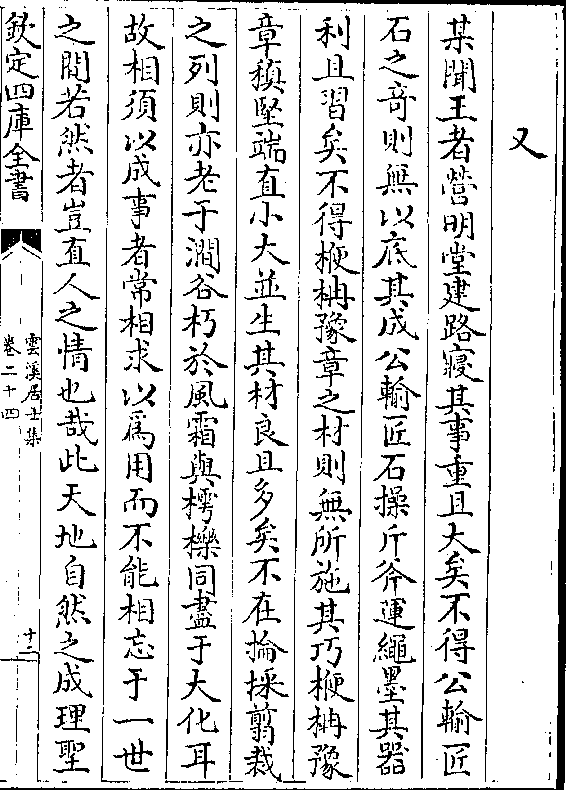 又
某聞王者營明堂建路寢其事重且大矣不得公輸匠
石之竒則無以底其成公輸匠石操斤斧運繩墨其器
利且習矣不得楩柟豫章之材則無所施其巧楩柟豫
章稹堅端直小大並生其材良且多矣不在掄採翦裁
之列則亦老于澗谷朽於風霜與樗櫟同盡于大化耳
故相須以成事者常相求以爲用而不能相忘于一世
之間若然者豈直人之情也哉此天地自然之成理聖
欽定四庫全書
雲溪居士集
卷二十四
十二